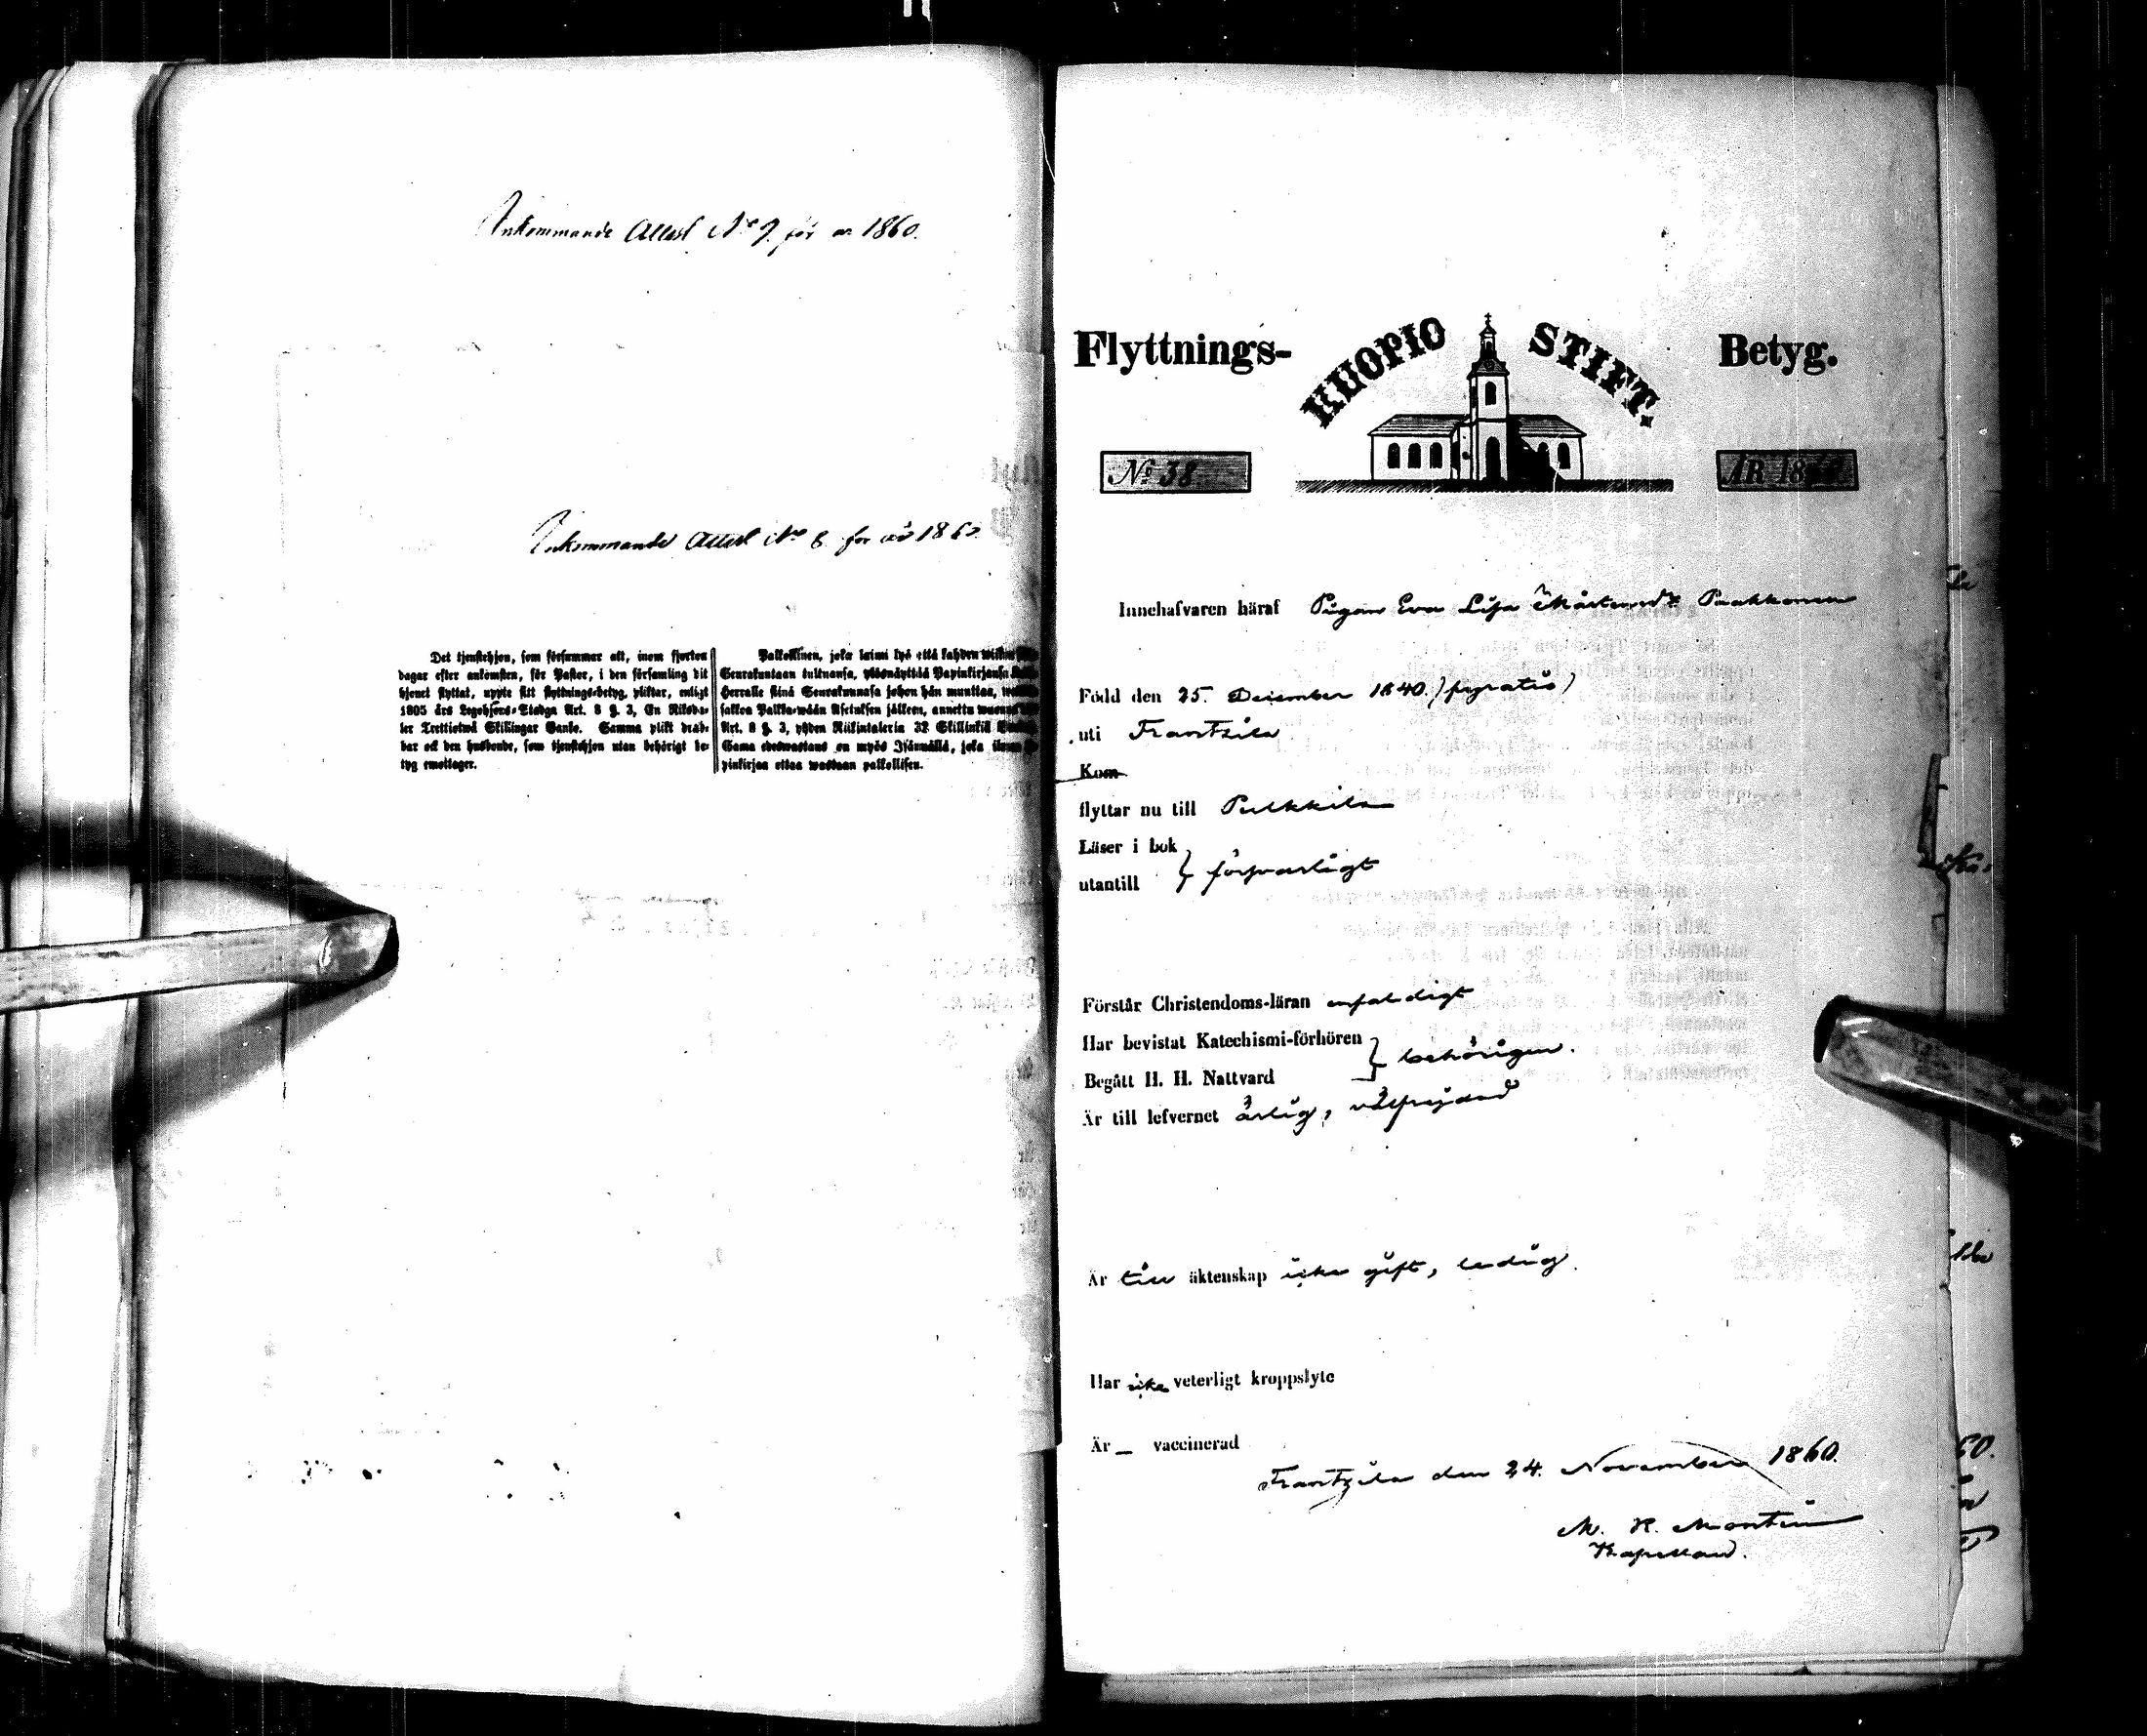 Inkommande Attest No 9. för år 1860.
Inkommande Attest No 8. for år 1860.
Det tjenstehjon, som försummar att, inom fjorton
dagar efter ankomsten, för Pastor, i den församling dit
hjonet flyttat, uppte sitt flyttnings-betyg, pliktar, enligt
1805 års Legohjons-Stadga Art. 8 §. 3, En Riksda-
ler Trettiotwå Skillingar Banko. Samma plikt drab-
bar ock den husbonde, som tjenstehjon utan behörigt be-
tyg emottager.
Palkollinen, joka laimi lyö että kahden
Seurakuntaan tultuansa, ylösnäyttää Papinkirjansa
Herralle siinä Seurakunnasa johon hän muuttaa,
sakkoa Palkka-wään Asetuksen jälkeen, annettu wuonna
Art. 8 §. 3, yhden Riikintalerin 32 Skillinkiä
Sama edeswastaus on myös Isännällä, joka ilman
pinkirjaa ottaa wastaan palkollisen.
Flyttnings- KUOPIO STIFT. Betyg.
No 38 ÅR 1860
Innehafvaren häraf Pigan Eva Lisa Mårtensdr Paakkonen
Född den 25. December 1840.)
uti Frantsila
Kom
flyttar nu till Pulkkila
Läser i bok
utantill } försvarligt
Förstår Christendoms-läran enfaldigt
Har bevistat Katechismi-förhören
Begått H. H. Nattvard } behörigen.
Är till lefvernet ärlig, välfrejdad
Är till äktenskap icke gift, ledig.
Har icke veterligt kroppslyte
Är — vaccinerad
Frantzila den 24. November 1860.
M. H. Montin
Kapellan.